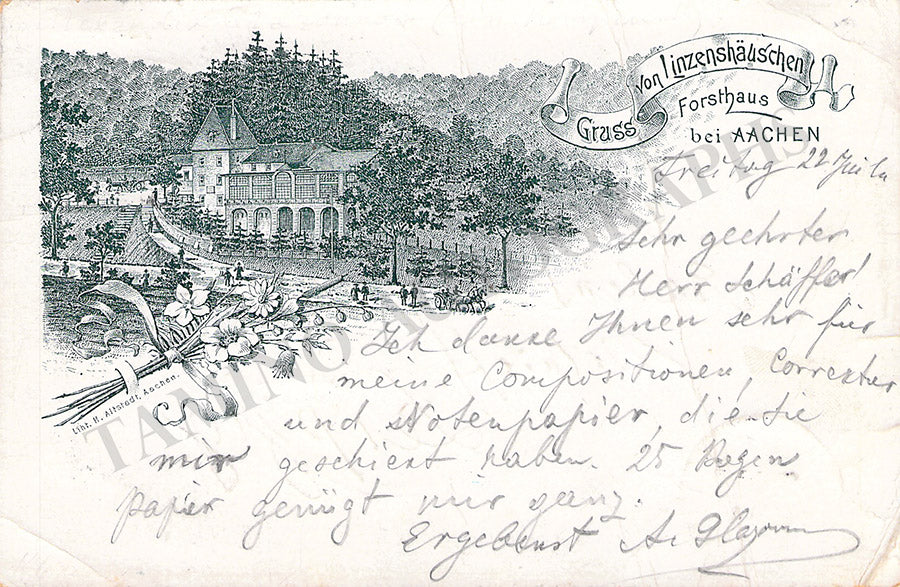 Gruss von Linzenshäuschen
Forsthaus
bei AACHEN
Freitag 22 Juli
Sehr geehrter
Herr Schäffer!
Ich danke Ihnen sehr für
meine Compositionen, Correctur
und Notenpapier, die Sie
mir geschickt haben. 25 Bogen
papier genügt mir ganz.
Ergebenst A. Glazounow
Lith. H. Altstadt, Aachen.
TAMINO AUTOGRAPHS